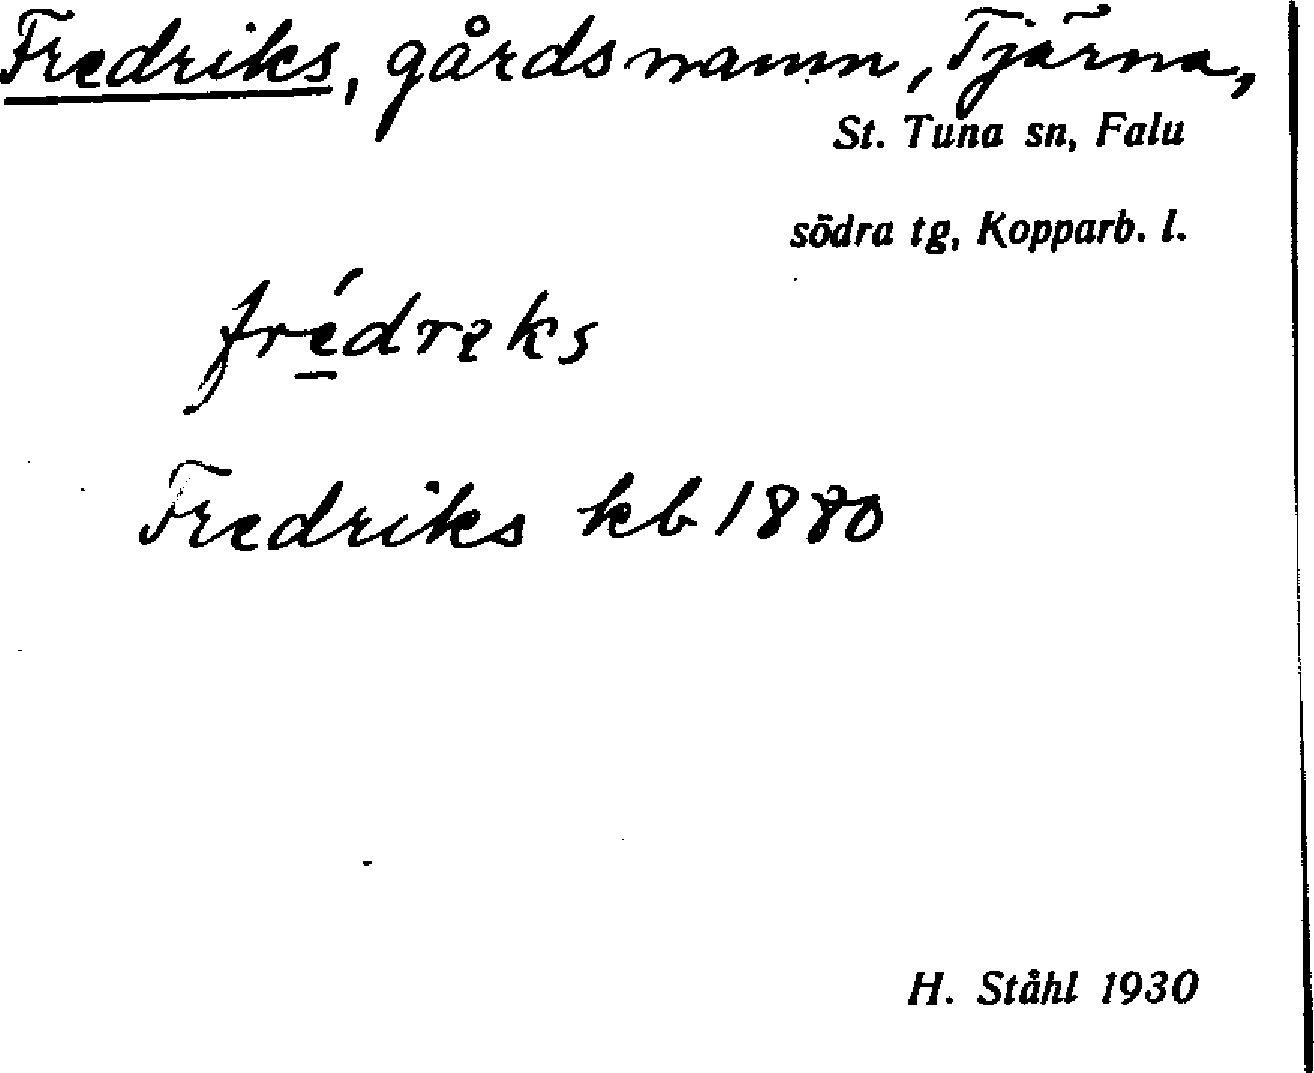 Fredriks, gårdsnamn, Tjärna,
St. Tuna sn, Falu
södra tg, Kopparb. l.
Fredriks kb 1880
H. Ståhl 1930